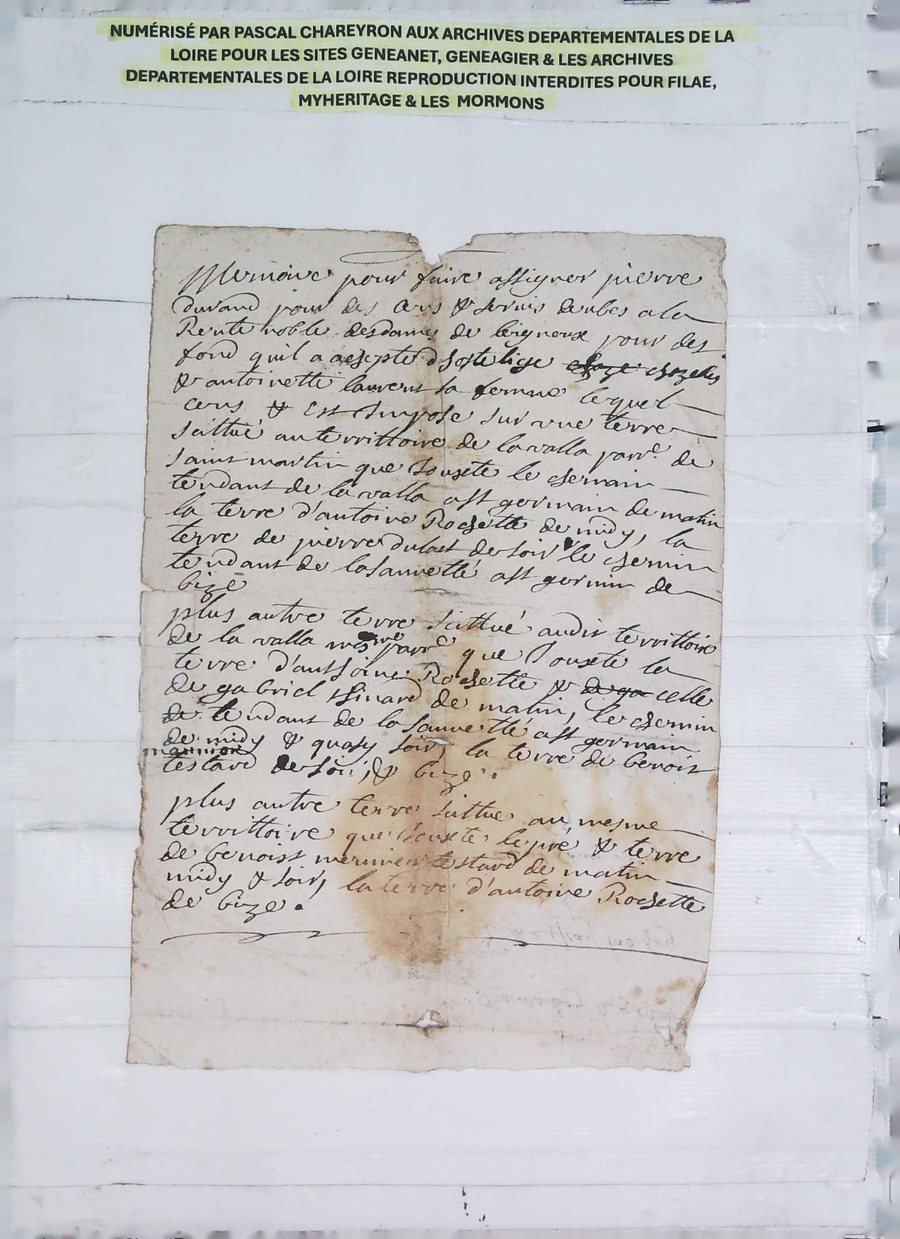 NUMÉRISÉ PAR PASCAL CHAREYRON AUX ARCHIVES DEPARTEMENTALES DE LA
LOIRE POUR LES SITES GENEANET, GENEAGIER & LES ARCHIVES
DEPARTEMENTALES DE LA LOIRE REPRODUCTION INTERDITES POUR FILAE,
MYHERITAGE & LES MORMONS
Memoire pour faire assigner pierre
durand pour des cens & servis deubes a la
Rente noble desdames de leigneux pour des
fond quil a
& antoinette laurent sa femme lequel
cens & est Impose sur une terre
scittué au territtoire de la valla parr.e de
saint martin que Jouxte le chemain
tendant de la valla ast germain de matin
la terre d'antoine Rochette de midy, la
terre de pierre dulact de soir le chemin
tendant de lasauvetté ast germin de
bize
plus autre terre scittué audit territtoire
de la valla parr.e que Jouxte la
terre d'anthoine Rochette & de ga celle
de gabriel thinard de matin, le chemin
de tendant de la sauvetté ast germain
de midy & quasy soir la terre de benoit
testard de soir, & bize.
plus autre terre scittue au mesme
territtoire que Jouxte le pré & terre
de benoist testard de matin
midy & soir, la terre d'antoine Rochette
de bize.